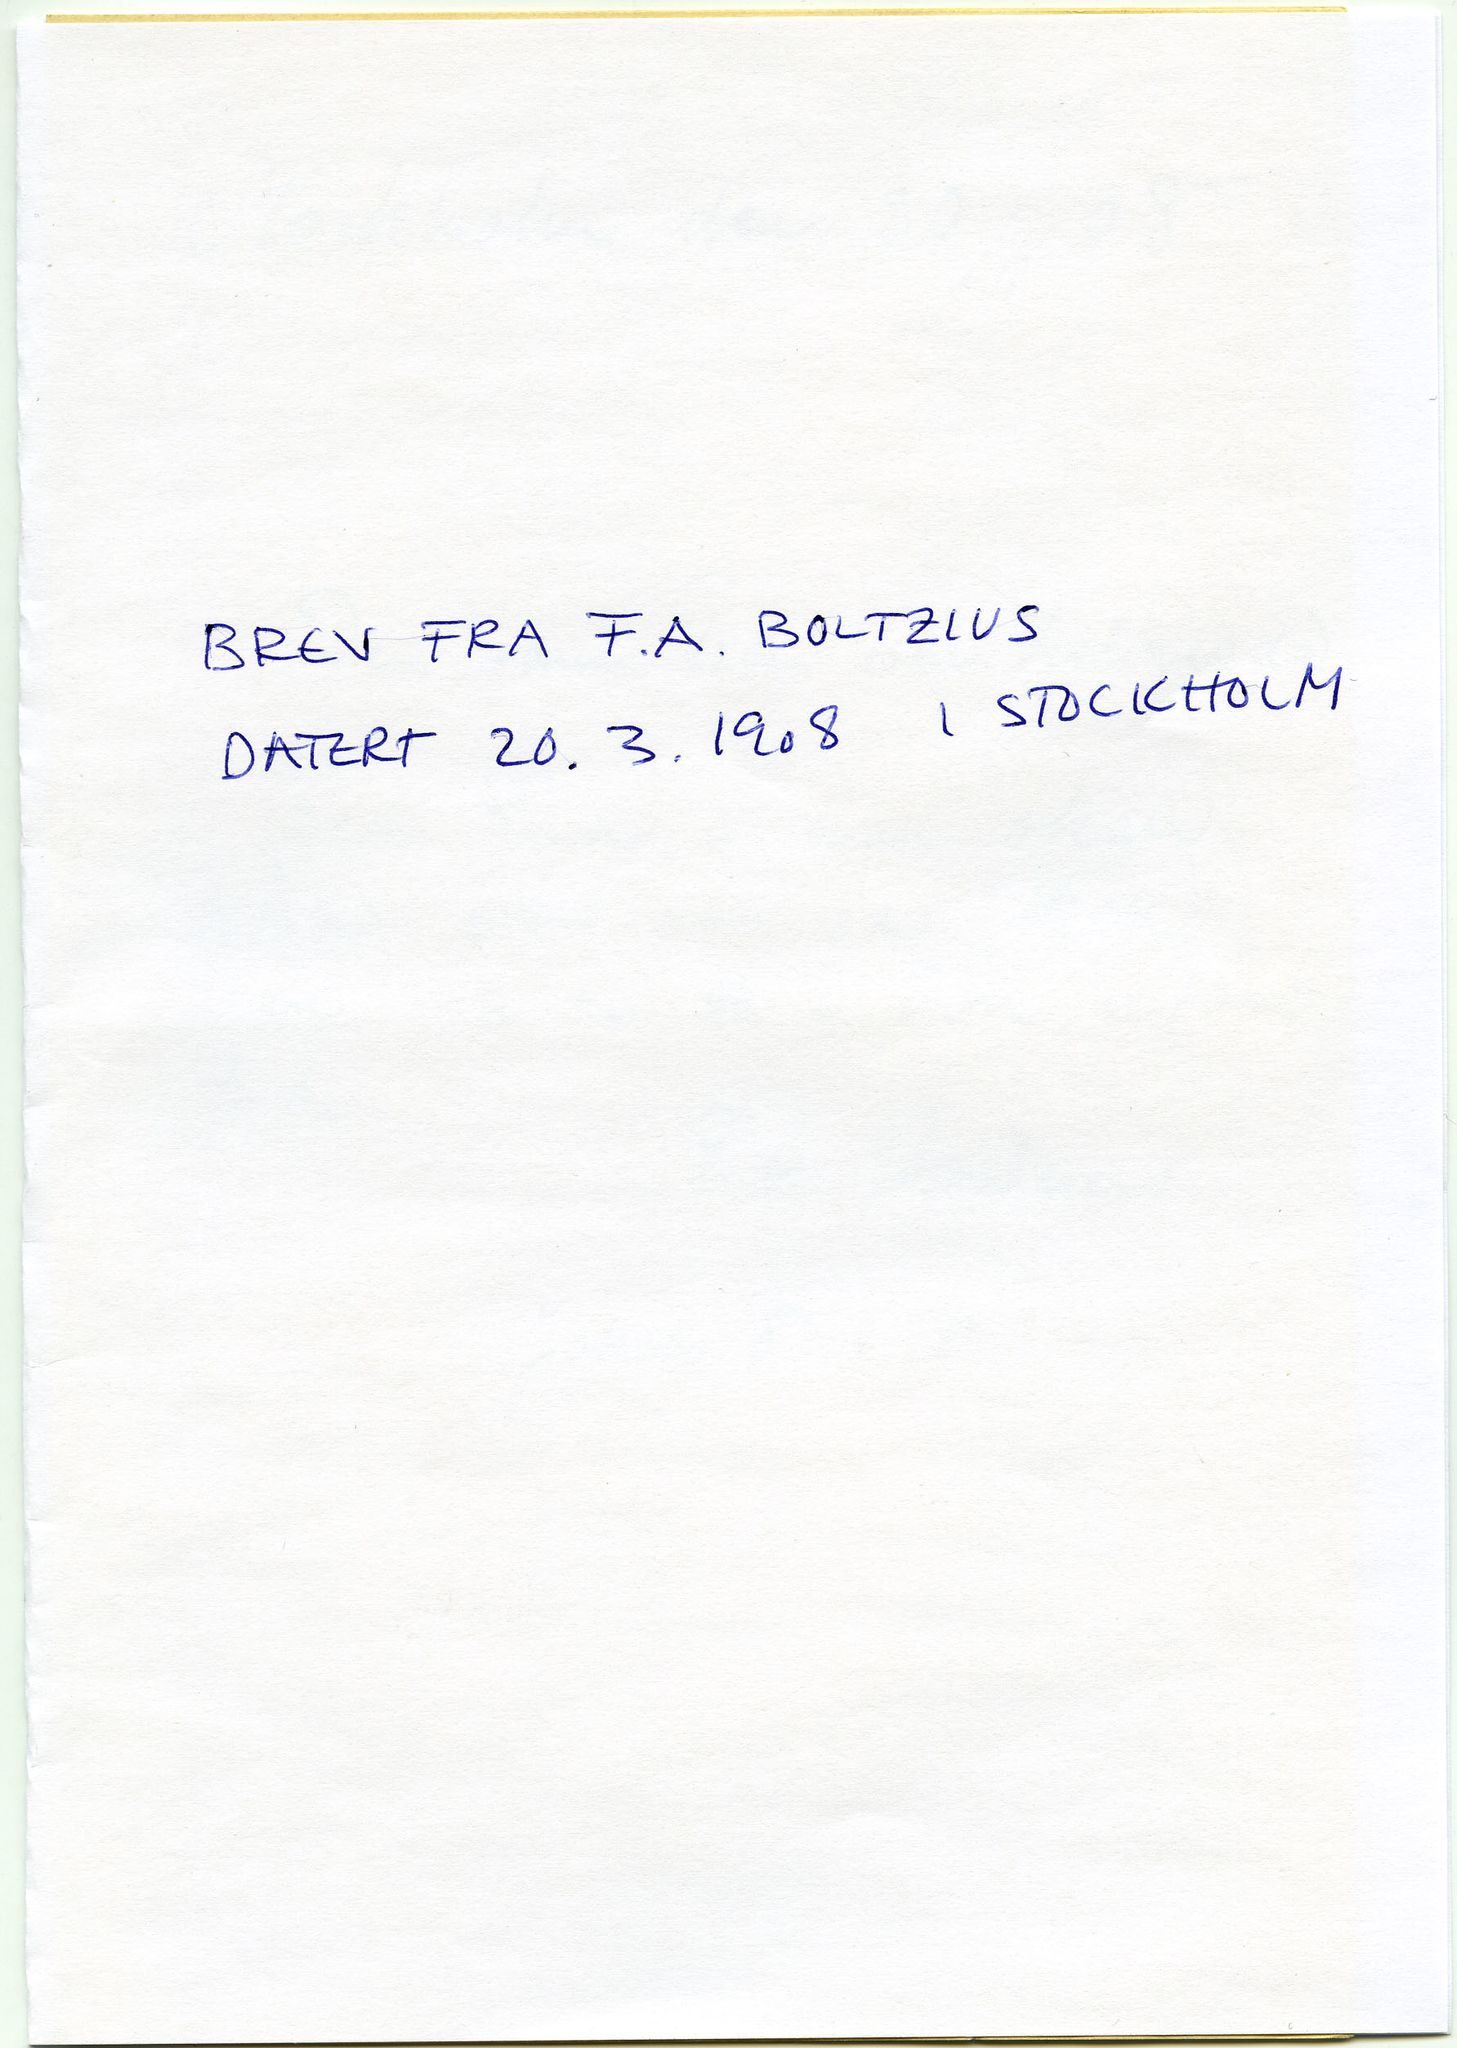 BREV FRA F.A. BOLTZIUS
DATERT 20.3.1908 I STOCKHOLM